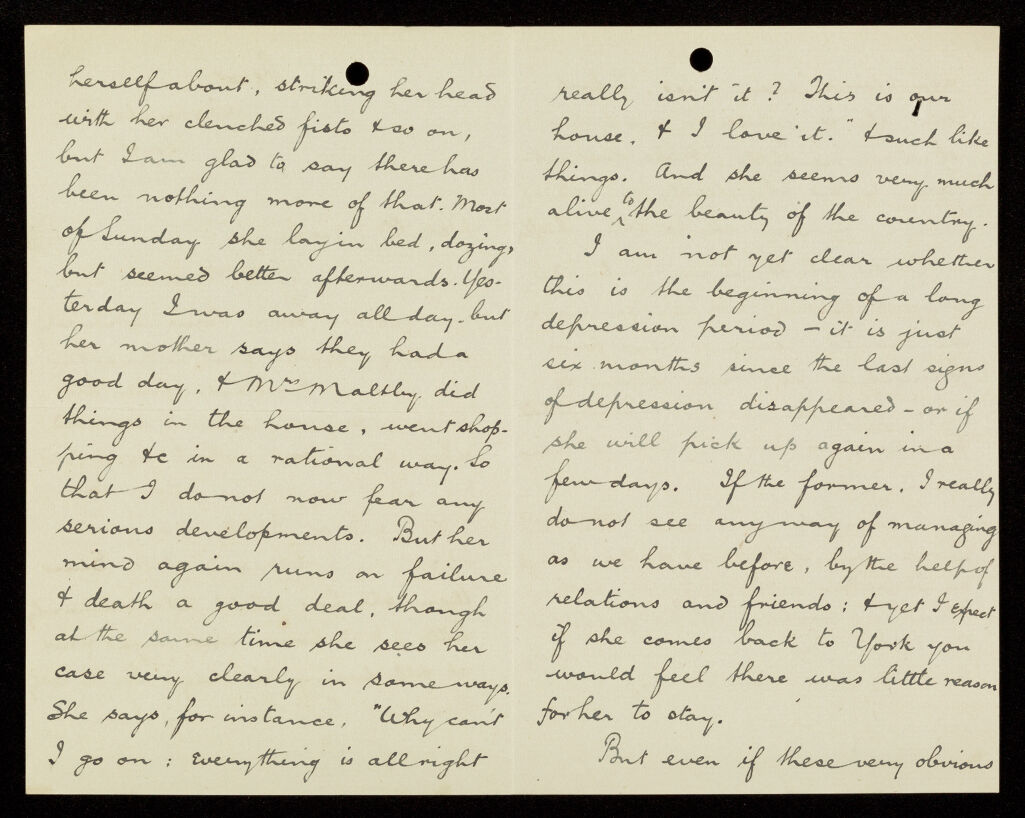 herself about, striking her head
with her clenched fists & so on,
but I am glad to say there has
been nothing more of that. Most
of Sunday she lay in bed, dozing,
but seemed better afterwards. Yes-
terday I was away all day, but
her mother says they had a
good day, & Mrs Maltby did
things in the house, went shop-
ping &c in a rational way. So
that I do not now fear any
serious developments. But her
mind again runs on failure
& death a good deal, though
at the same time she sees her
case very clearly in some ways.
She says, for instance, "Why can't
I go on : everything is all right
really isn't it? This is our
house, & I love it." & such like
things. And she seems very much
alive to the beauty of the country.
I am not yet clear whether
this is the beginning of a long
depression period – it is just
six months since the last signs
of depression disappeared – or if
she will pick up again in a
few days. If the former, I really
do not see any way of managing
as we have before, by the help of
relations and friends; & yet I expect
if she comes back to York you
would feel there was little reason
for her to stay.
But even if these very obvious